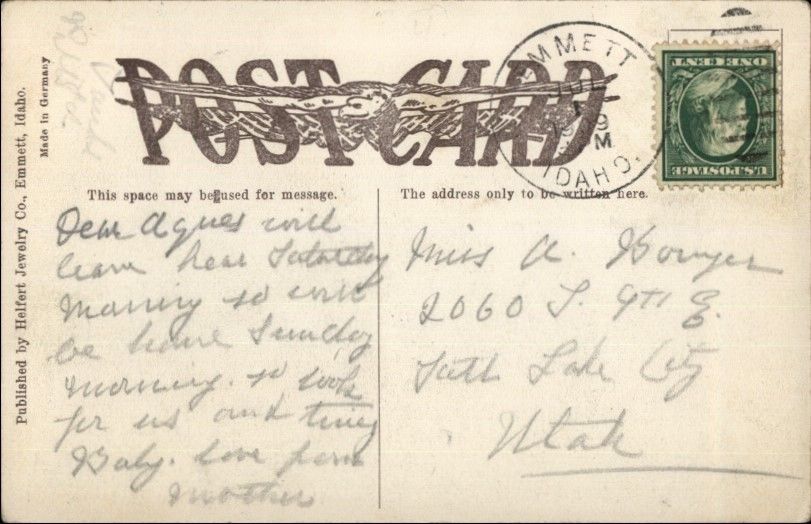 POST CARD
EMMETT
JUL
1909
M
IDAHO.
U.S. POSTAGE
ONE CENT
Made in Germany
Published by Helfert Jewelry Co., Emmett, Idaho.
This space may be used for message.
The address only to be written here.
Dear Agnes will
leave hear Saturday
Morning so will
be home Sunday
morning. so look
for us and tiney
Baby. love from
Mother
Miss A. Bowyer
2060 S. 9th E.
Salt Lake City
Utah